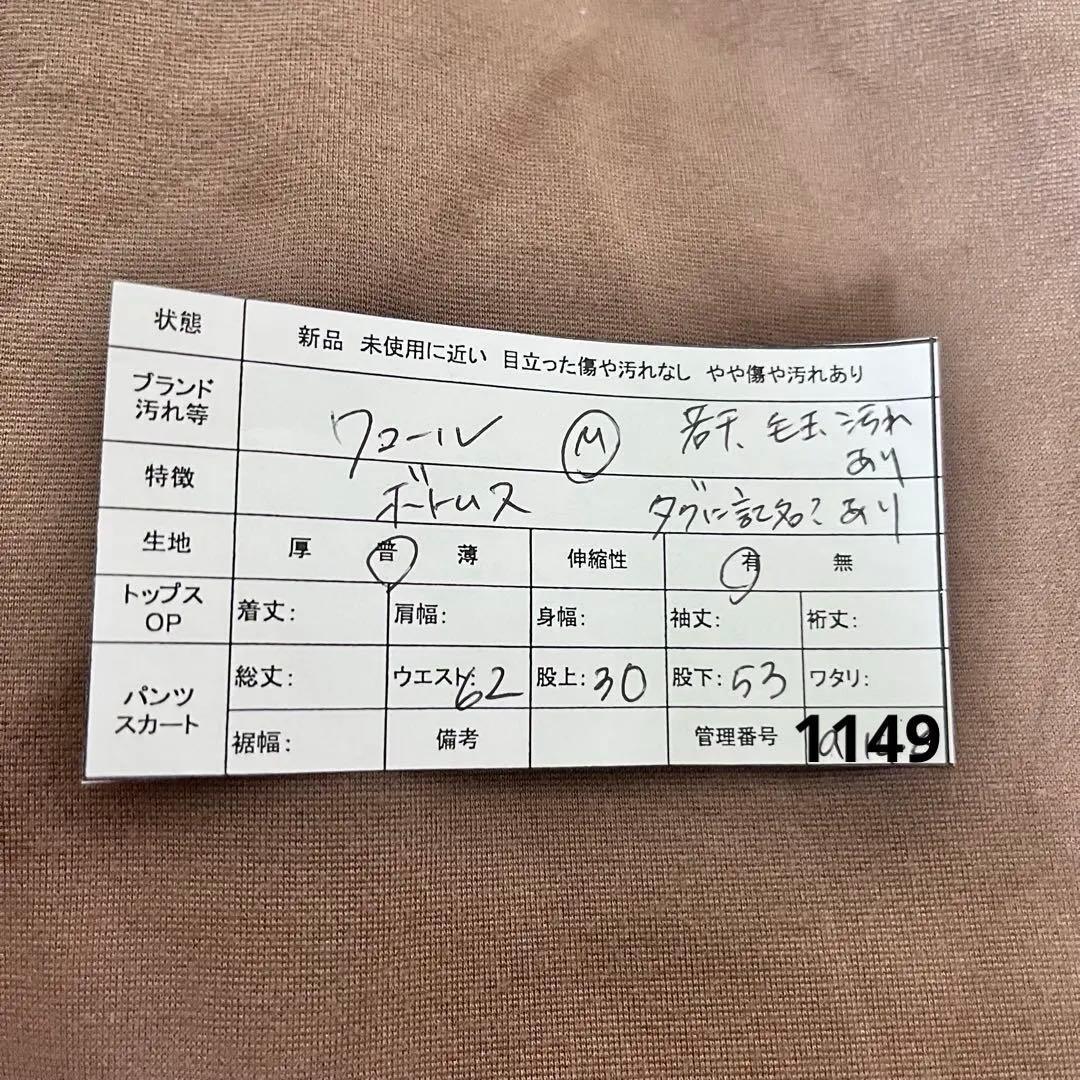 状態 新品 未使用に近い 目立った傷や汚れなし やや傷や汚れあり
ブランド
汚れ等
ワコール Ⓜ 若干、毛玉、汚れ
あり
特徴 ボトムス タグに記名?あり
生地 厚 普 薄 伸縮性 有 無
トップス
OP
着丈: 肩幅: 身幅: 袖丈: 裄丈:
パンツ
スカート
総丈: ウエスト:62 股上:30 股下:53 ワタリ:
裾幅: 備考 管理番号 1149